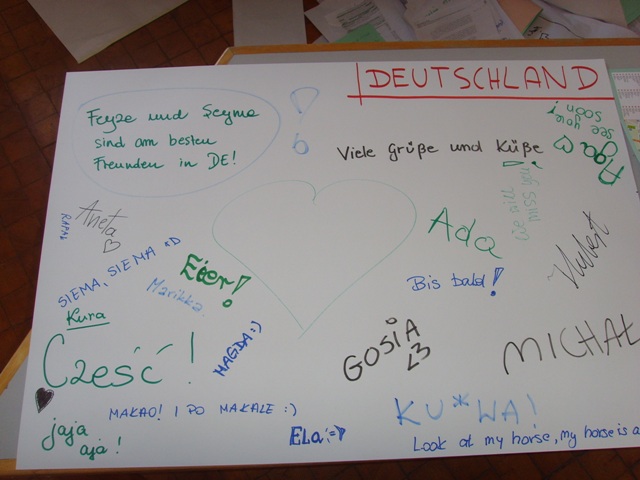 DEUTSCHLAND
Feyze und Şeyma
sind am besten
Freunden in DE!
see you
soon!
Aga
Viele Grüße und Küße
we will
miss you!
RAFAŁ
Aneta
Ada
Hubert
SIEMA, SIEMA xD
Eier!
Marikka.
Bis bald!
Kura
MAGDA:)
GOSIA
<3
MICHAŁ
Cześć!
MAKAO! I PO MAKALE :)
KU*WA!
jaja
aja!
ELa
Look at my horse, my horse is a